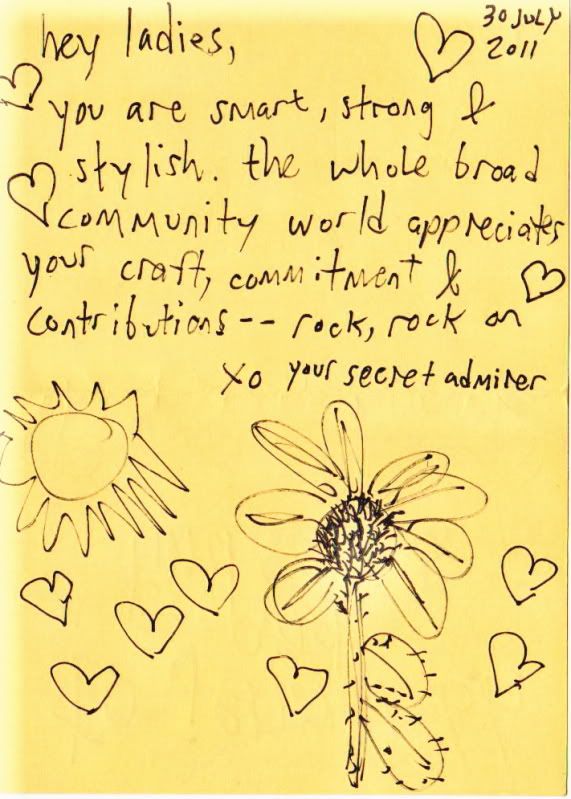 30 JULY
2011
hey ladies,
you are smart, strong &
stylish. the whole broad
community world appreciates
your craft, commitment &
contributions-- rock, rock on
xo your secret admirer